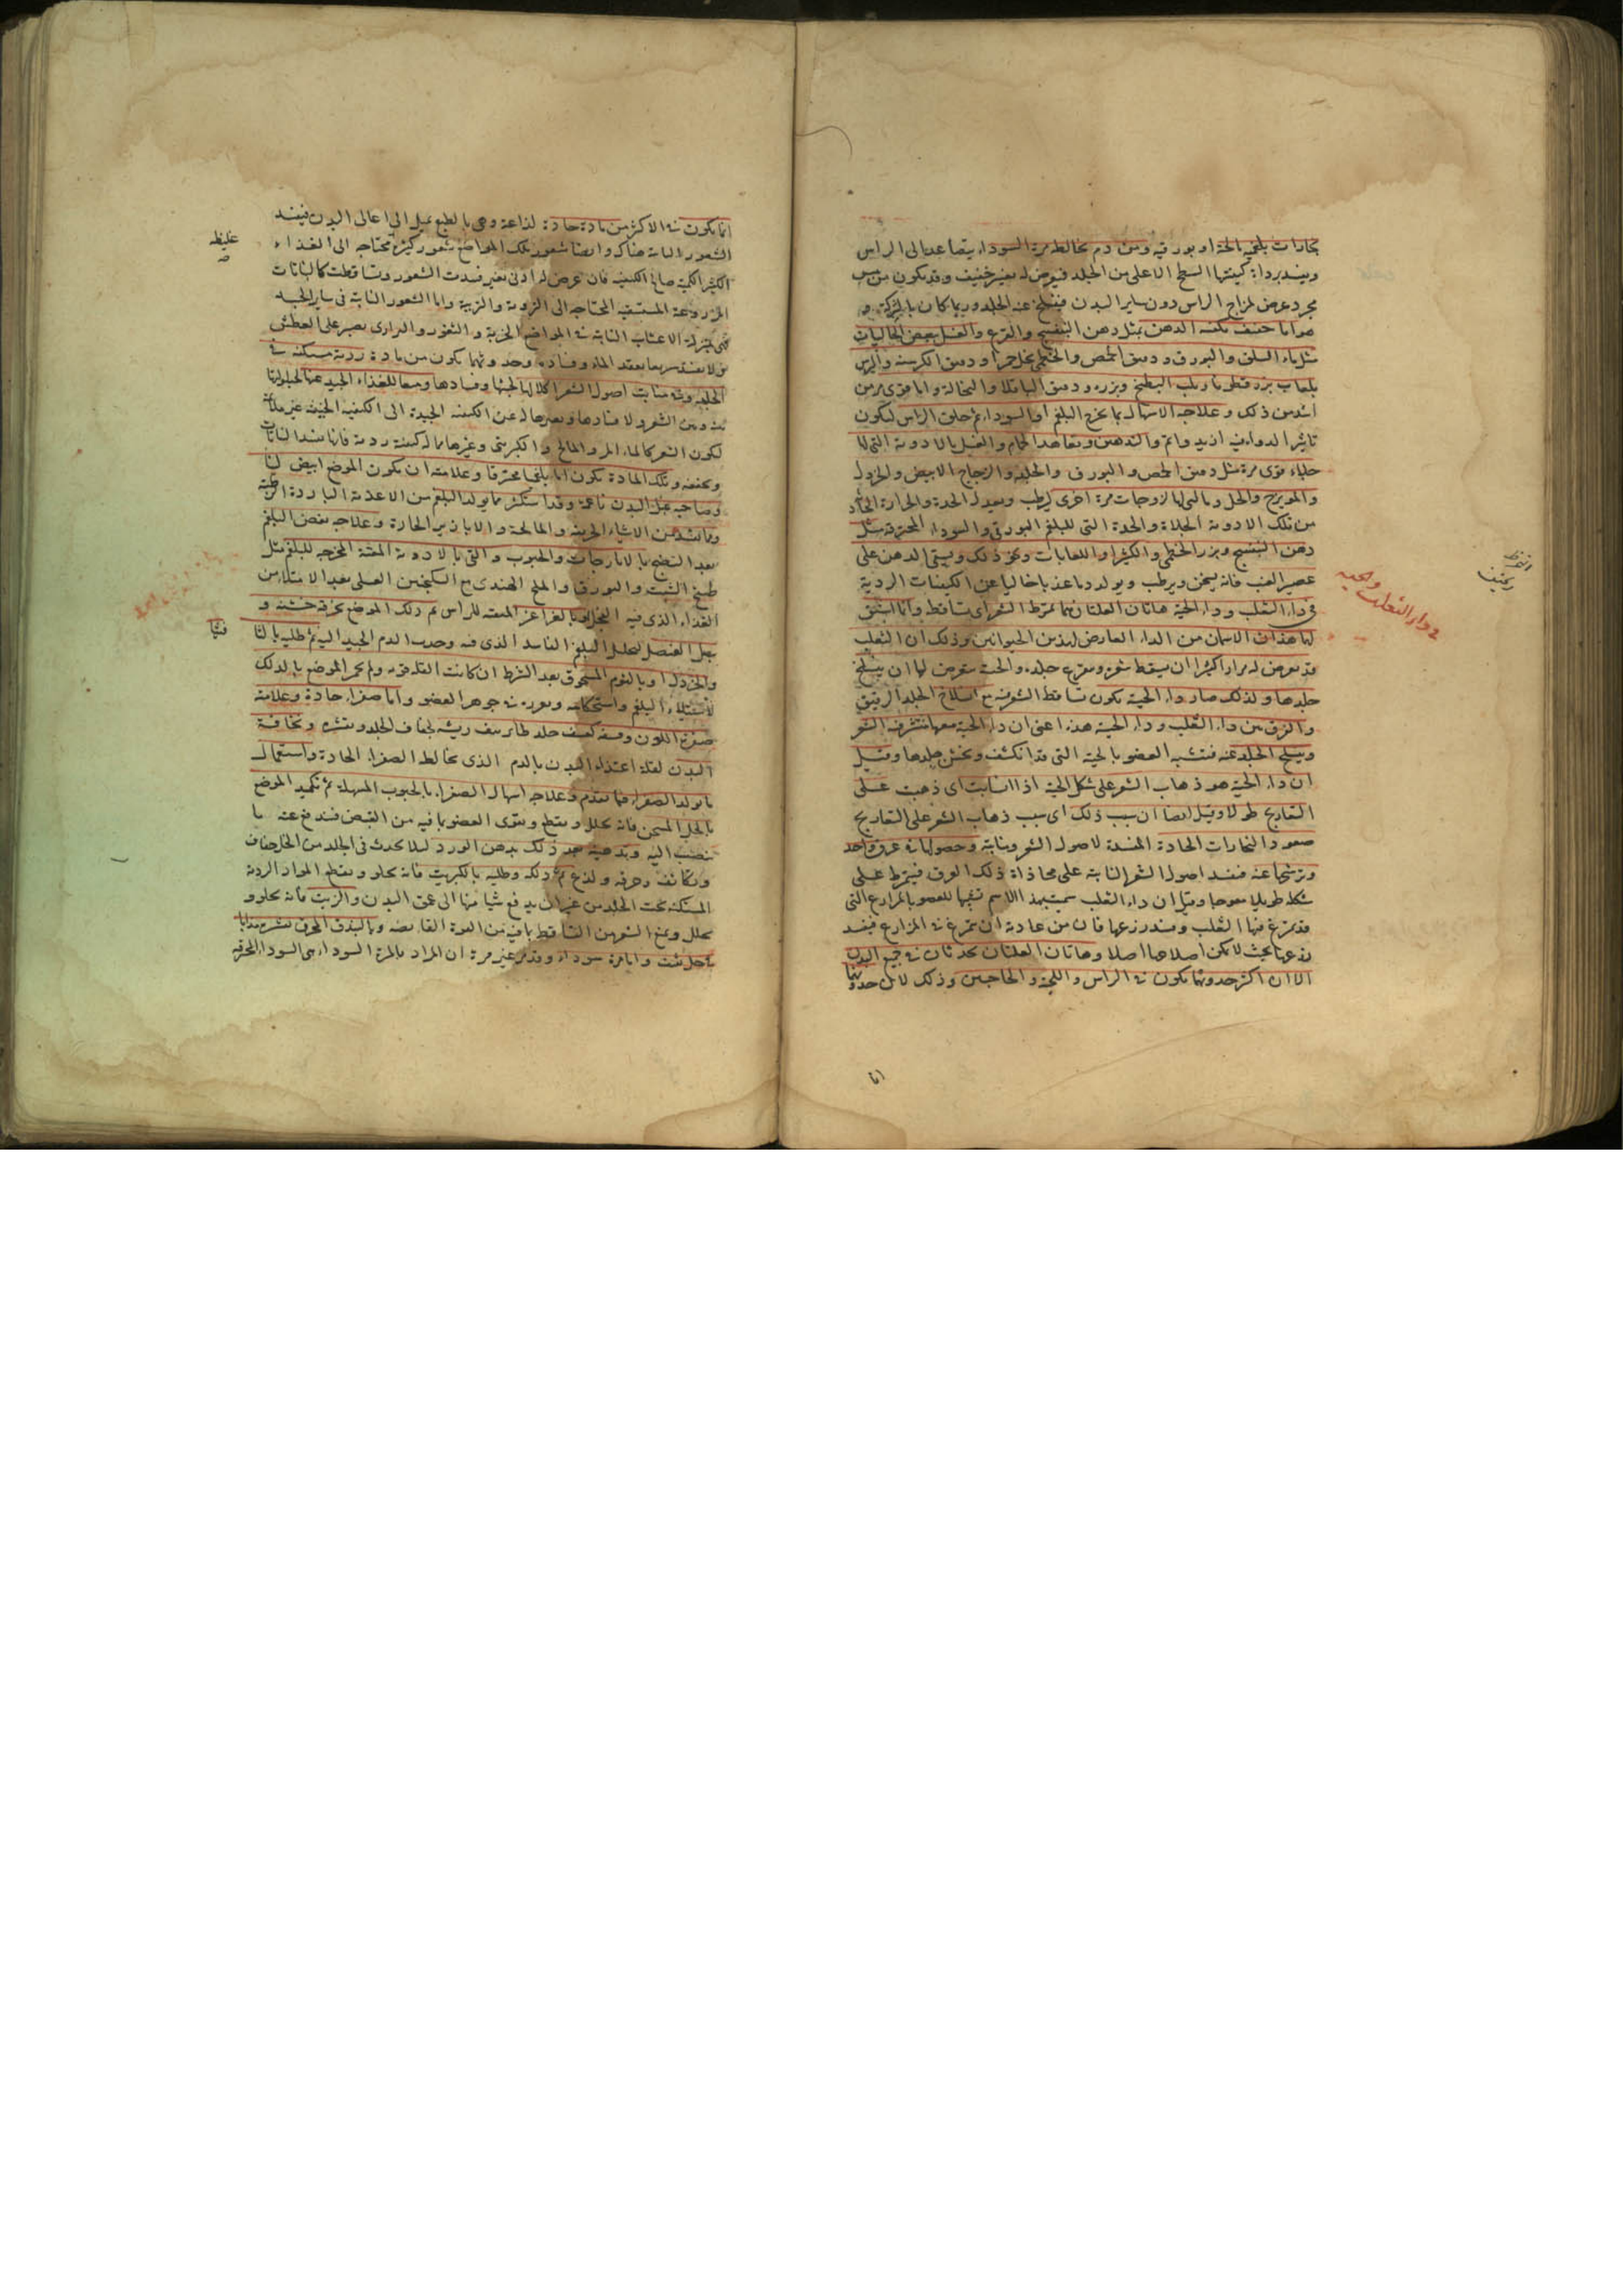 بخارات بلغمية مالحة او بورقية ومن دم يخالطه مرة السوداء يتصاعد الى الراس
ويفسد برداءة كيفيتها السطح الاعلى من الجلد فيعرض له تغير خفيف وقد يكون من يبس
مجرد عرض لمزاج الراس دون ساير البدن فينسلخ عنه الجلد وربما كان بالشركة و
هو اما خفيف يكفيه الدهن بمثل دهن البنفسج والقرع والغسل ببعض الجاليات
مثل ماء السلق والبورق ودقيق الحمص والخطمى بخل خمر او دقيق الكرسنة والترمس
بلعاب بزر قطونا ولب البطيخ وبزره ودقيق الباقلا والنخالة واما قوى مزمن
اشد من ذلك وعلاجه الاسهال بما يخرج البلغم او السوداء ثم حلق الراس ليكون
تاثير الدواء فيه ازيد واتم والتدهين وتعاهد الحمام والغسل بالادوية التى لها
جلاء قوى مرة مثل دقيق الحمص والبورق والحلبة والزجاج الابيض والخردل
والمويزج والخل وبالتى لها لزوجات مرة اخرى ليرطب ويعدل الحدة والحرارة الحادثة
من تلك الادوية الجلاءة والحدة التى للبلغم البورقى والسوداء المحترقة مثل
دهن البنفسج وبزر الخطمى والكثيرا واللعابات ونحو ذلك ويسقى الدهن على
عصير العنب فانه يسخن ويرطب ويولد دما عذبا خاليا عن الكيفيات الردية
فى داء الثعلب وداء الحية هاتان العلتان هما تمرط الشعر اى تساقط وانما اشتق
لهما هذان الاسمان من الداء العارض لهذين الحيوانين وذلك ان الثعلب
قد يعرض له مرارا كثيرا ان يسقط شعره ويتقرح جلده والحية يعرض لها ان ينسلخ
جلدها ولذلك صار داء الحية يكون تساقط الشعر فيه مع انسلاخ الجلد الرقيق
والفرق بين داء الثعلب وداء الحية هذا اعنى ان داء الحية معها ينتثر فيه الشعر
وينسلخ الجلد عنه فتشبه العضو بالحية التى قد انكشف وتخشن جلدها وقيل
ان داء الحية هو ذهاب الشعر على شكل الحية اذا انسابت اى ذهبت على
التعاريج طولا وقيل ايضا ان سبب ذلك اى سبب ذهاب الشعر على التعاريج
صعود البخارات الحادة المفسدة لاصول الشعر ومنابته وحصولها فى عرق واحد
وترشحها عنه فيفسد اصول الشعر النابتة على محاذاة ذلك العرق فيتمرط على
شكله طويلا معوجا وقيل ان داء الثعلب سميت بهذا الاسم تشبيها للعضو بالمزارع التى
قد يتمرغ فيها الثعلب ويفسد زرعها فان من عادته ان يتمرغ فى المزارع فيفسد
زرعها بحيث لا يمكن اصلاحها اصلا وهاتان العلتان تحدثان فى جميع البدن
الا ان اكثر حدوثهما يكون فى الراس واللحية والحاجبين وذلك لان حدوثهما
فى داء الثعلب والحية
انما
انما يكون فى الاكثر من مادة حادة لذاعة وهى بالطبع يميل الى اعالى البدن فيفسد
الشعور النابتة هناك وايضا شعور تلك المواضع شعور كثيرة محتاجة الى الغذاء
الكثير الكمية صالح الكيفية فان عرض له ادنى تغير فسدت الشعور وتساقطت كالنباتات
المزروعة المستسقية المحتاجة الى التزويد والتربية واما الشعور النابتة فى ساير الجسد
فهى بمنزلة الاعشاب النابتة فى المواضع الخربة والثغور والبرارى يصبر على العطش
و لا يفسد سريعا بفقد الماء وفساده وحدوثهما يكون من مادة ردية مستكنة فى
الجلد وفى منابت اصول الشعر اكلالها لخبثها وفسادها ومنعها للغذاء الجيد عنها لحيلولتها
بينه وبين الشعر ولافسادها وتغييرها له عن الكيفية الجيدة الى الكيفية الخبيثة غير ملائمة
لتكون الشعر كالماء المر والمالح والكبريتى وغيرها مما له كيفية ردية فانها يفسد النباتات
ويجففه وتلك المادة تكون اما بلغما محترقا وعلامته ان يكون الموضع ابيض لينا
وصاحبه عبل البدن ناعمه وقد استكثر مما يولد البلغم من الاغذية الباردة الرطبة
ومما يشده من الاشياء الحريفة والمالحة والابازير الحارة وعلاجه نفض البلغم
بعد النضج بالايارجات والحبوب والقى بالادوية المقيئة المخرجة للبلغم مثل
طبيخ الشبت والبورق والملح الهندى مع السكنجبين العسلى بعد الامتلاء من
الغذاء الذى فيه الفجل وبالغراغر المنقية للراس ثم دلك الموضع بخرقة خشنة و
بصل العنصل ليحلل البلغم الفاسد الذى فيه وجذب الدم الجيد اليه ثم طليه بالثافسيا
والخردل او بالثوم المسحوق بعد الشرط ان كانت العلة قوية ولم يحمر الموضع بالدلك
لاستيلاء البلغم واستحكامه وغوره فى جوهر العضو واما صفراء حادة وعلامته
صفرة اللون وقشف كقشف جلد طائر نتف ريشه لجفاف الجلد وتقشره ونحافة
البدن لقلة اغتذاء البدن بالدم الذى يخالط الصفراء الحادة واستعمال
ما يولد الصفراء فيما تقدم وعلاجه اسهال الصفراء بالحبوب المسهلة ثم تكميد الموضع
بالخل المسخن فانه يحلل ويقطع ويقوى العضو بما فيه من القبض فيندفع عنه ما
ينصب اليه وتدهينه بعد ذلك بدهن الورد ليلا يحدث فى الجلد من الخل جفاف
وتكاثف وحرقة ولذع ثم دلكه وطليه بالكبريت فانه يجلو ويقطع المواد الردية
المستكنة تحت الجلد من غير ان يدفع شيا منها الى عمق البدن والزيت فانه يجلو و
يحلل ويمنع الشعر من التساقط بما فيه من القوة القابضة وبالبندق المحرق بقشره مذابا
بالخل ثقيف واما مرة سوداء وقد مر غير مرة ان المراد بالمرة السوداء هى السوداء المحترقة
غليظة